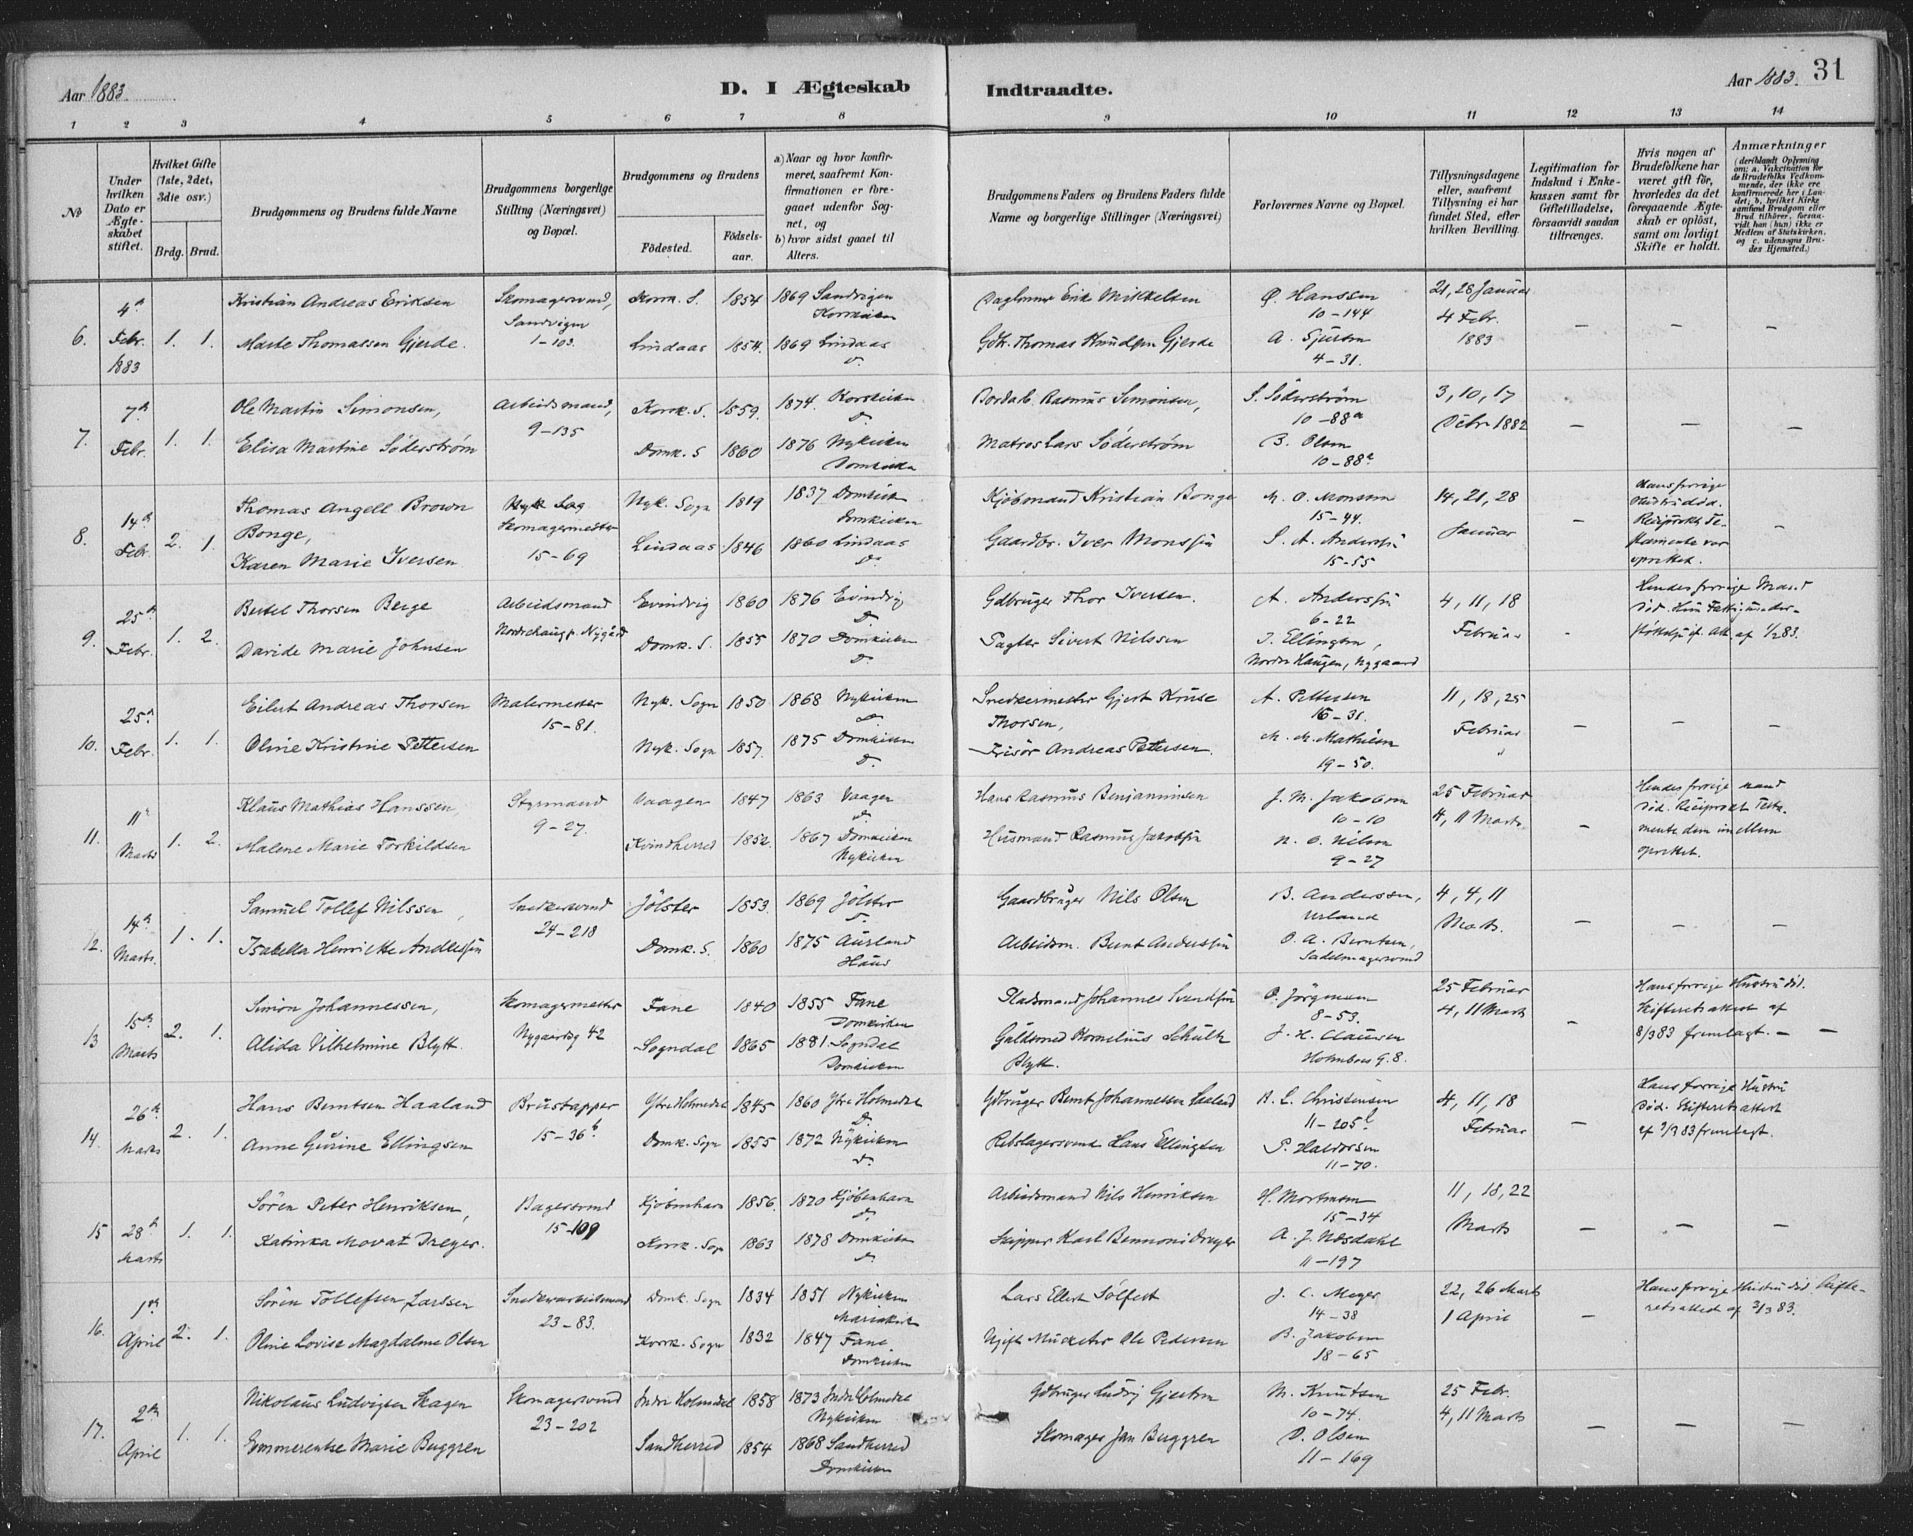 Aar 1883.
D. I Ægteskab
Indtraadte.
Aar 1883.
31
1 2 3 4 5 6 7 8 9 10 11 12 13 14
No
Under hvilken Dato er Ægteskabet stiftet.
Hvilket Gifte (1ste, 2det, 3die osv.)
Brdg. Brud.
Brudgommens og Brudens fulde Navne
Brudgommens borgerlige Stilling (Næringsvei) og Bopæl.
Brudgommens og Brudens
Födested.
Födselsaar.
a) Naar og hvor konfirmeret, saafremt Konfirmationen er foregaaet udenfor Sognet, og
b) hvor sidst gaaet til Alters.
Brudgommens Faders og Brudens Faders fulde Navne og borgerlige Stillinger (Næringsvei)
Forlovernes Navne og Bopæl.
Tillysningsdagene eller, saafremt Tillysning ei har fundet Sted, efter hvilken Bevilling.
Legitimation for Indskud i Enkekassen samt for Giftetilladelse, forsaavidt saadan tiltrænges.
Hvis nogen af Brudefolkene har været gift för, hvorledes da det foregaaende Ægteskab er oplöst, samt om lovligt Skifte er holdt.
Anmærkninger
(deriblandt Oplysning om: a. Vakcination for de Brudefolks Vedkommende, der ikke ere konfirmerede her i Landet; b. hvilket Kirkesamfund Brudgom eller Brud tilhörer, forsaavidt han (hun) ikke er Medlem af Statskirken, og c. udensogns Brudes Hjemsted.)
6. 4de Febr. 1883 1. 1.
Kristian Andreas Eriksen
Marte Thomassen Gjerde.
Skomagersvend, Sandvigen 1-103.
Korsk. S. 1854 1869 Sandvigen Korskirken
Lindaas 1854. 1869 Lindaas D.
Daglønner Erik Mikkelsen
Gdk. Thomas Knudsen Gjerde
O. Hanssen 10-144
4-31.
21, 28 Januar 4 Febr. 1883
— — —
7. 7de Febr. 1. 1.
Ole Martin Simonsen,
Elisa Martine Söderström
Arbeidsmand, 9-135
Korsk. S. 1859. 1874. Korskirken D.
Domk. S 1860 1876 Nykirken Domkirken
Rasmus Simonsen,
Matros Lars Söderström
S. Söderström 10-88a
B. Olsen 10-88a
3, 10, 17 Debr 1882
— — —
8. 14de Febr. 2. 1.
Thomas Angell Brown Bonge,
Karen Marie Iversen
Skomagermester 15-69
Nyk. Sogn 1819 1837 Domkirken Domkirken
Lindaas 1846 1860 Lindaas D.
Kjöbmand Kristian Bonge
Gaardbr. Iver Monssen
M. O. Monsen 15-44.
S. A. Anderssen 15-55
14, 21, 28 Januar
—
Hans forrige Hustru död. Reciprokt Testamente var oprettet.
—
9. 25de Febr. 1. 2.
Bertel Thorsen Berge
Davide Marie Johnsen
Arbeidsmand
Evindvig 1860 1876 Evindvig D.
Domk. S. 1855 1870 Domkirken D.
Gdbruger Thor Iversen.
Sivert Nilssen
A. Anderssen 6-22
T. Ellingsen, Nordre Haugen, Nygaard
4, 11, 18 Februar
-
Hendes forrige Mand död. 1/2 83.
10. 25de Febr. 1. 1.
Eilert Andreas Thorsen
Oline Kristine Pettersen
Malermester 15-81.
Nyk. Sogn 1850 1868 Nykirken D.
Nyk. Sogn 1857. 1875 Domkirken D.
Snedkermester Gjert Kruse Thorsen,
Frisör Andreas Pettersen.
A. Pettersen 16-31.
M. M. Mathiesen 19-50.
11, 18, 25 Februar
— — —
11. 11te Marts 1. 2.
Klaus Mathias Hanssen,
Malene Marie Torkildsen
Styrmand 9-27.
Vaagen 1847 1863 Vaagen D.
Kvindherred 1852. 1867 Domkirken Nykirken
Hans Rasmus Benjaminsen
Husmand Rasmus Jakobsen
J. M. Jakobsen 10-10
N. O. Nilsen 9-27
25 Februar 4, 11 Marts
—
Hendes forrige Mand död. Reciprokt Testamente dem imellem oprettet.
12. 14de Marts. 1. 1.
Samuel Tollef Nilssen,
Isabella Henriette Anderssen
Snedkersvend 24-218
Jölster 1853. 1869 Jölster D.
Domk. S. 1860 1875 Aurland Haus
Gaardbruger Nils Olsen
Arbeidsm. Bernt Anderssen
B. Anderssen, Urland
O. A. Berntsen, Sadelmagersvend
4, 4, 11 Marts.
— — —
13 15de Marts 2. 1.
Simon Johannessen,
Alida Vilhelmine Blytt.
Skomagermester Nygaardsg 42
Fane 1840 1855 Fane Domkirken
Sogndal 1865 1881 Sogndal Domkirken
Pladsmand Johannes Svendsen
Guldsmed Kornelius Schultz Blytt.
O. Jörgensen 8-53.
J. H. Clausen Holmboes G. 8.
25 Februar 4, 11 Marts
—
Hans forrige Hustru död. Skifteretsattest af 8/3 83 fremlagt. — —
14. 26de Marts 2. 1.
Hans Berntsen Haaland
Anne Gurine Ellingsen
Brustapper 15-36b
Ytre Holmedal 1845 1860 Ytre Holmedal D.
Domk. Sogn 1855 1872 Nykirken D.
Gdbruger Bernt Johannessen Haaland
Rebslagersvend Hans Ellingsen
B. L. Christensen 11-205b
P. Haldorsen 11-70.
4, 11, 18 Februar
—
Hans forrige Hustru död. Skifteretsattest fremlagt.
15 28de Marts 1. 1.
Sören Peter Henriksen,
Katinka Mowat Dreyer.
Bagersvend 15-109
Kjöbenhavn 1856. 1870 Kjöbenhavn D.
Korsk. Sogn 1863 1878 Domkirken D.
Arbeidsmand Nils Henriksen
Skipper Karl Bennoni Dreyer
H. Mortensen 15-34
A. J. Nesdahl 11-197
11, 18, 22 Marts
— — —
16. 1ste April 2. 1.
Sören Tollefsen Larsen
Oline Lovise Magdalene Olsen
Snedkerarbeidsmand 23-83.
Domk. Sogn 1834 1851 Nykirken Mariakirk
Korsk. Sogn 1832 1847 Fane. Domkirken
Lars Ellert Sölfest
Ugift Musketer Ole Pedersen
J. C. Meyer 14-38
B. Jakobsen 18-65
22, 26 Marts 1 April
—
Hans forrige Hustru död. Skifteretsattest af 2/3 83.
17. 2den April 1. 1.
Nikolaus Ludvigsen Skagen
Emmerentse Marie Buggren
Skomagersvend 23-202
Indre Holmedal 1858 1873 Indre Holmedal Nykirken
Sandherred 1854 1868 Sandherred Domkirken
Gdbruger Ludvig Gjertsen
Skomager Jan Buggren
M. Knutsen 10-74.
O. Olsen 11-169
25 Febr. 4, 11 Marts
— — —